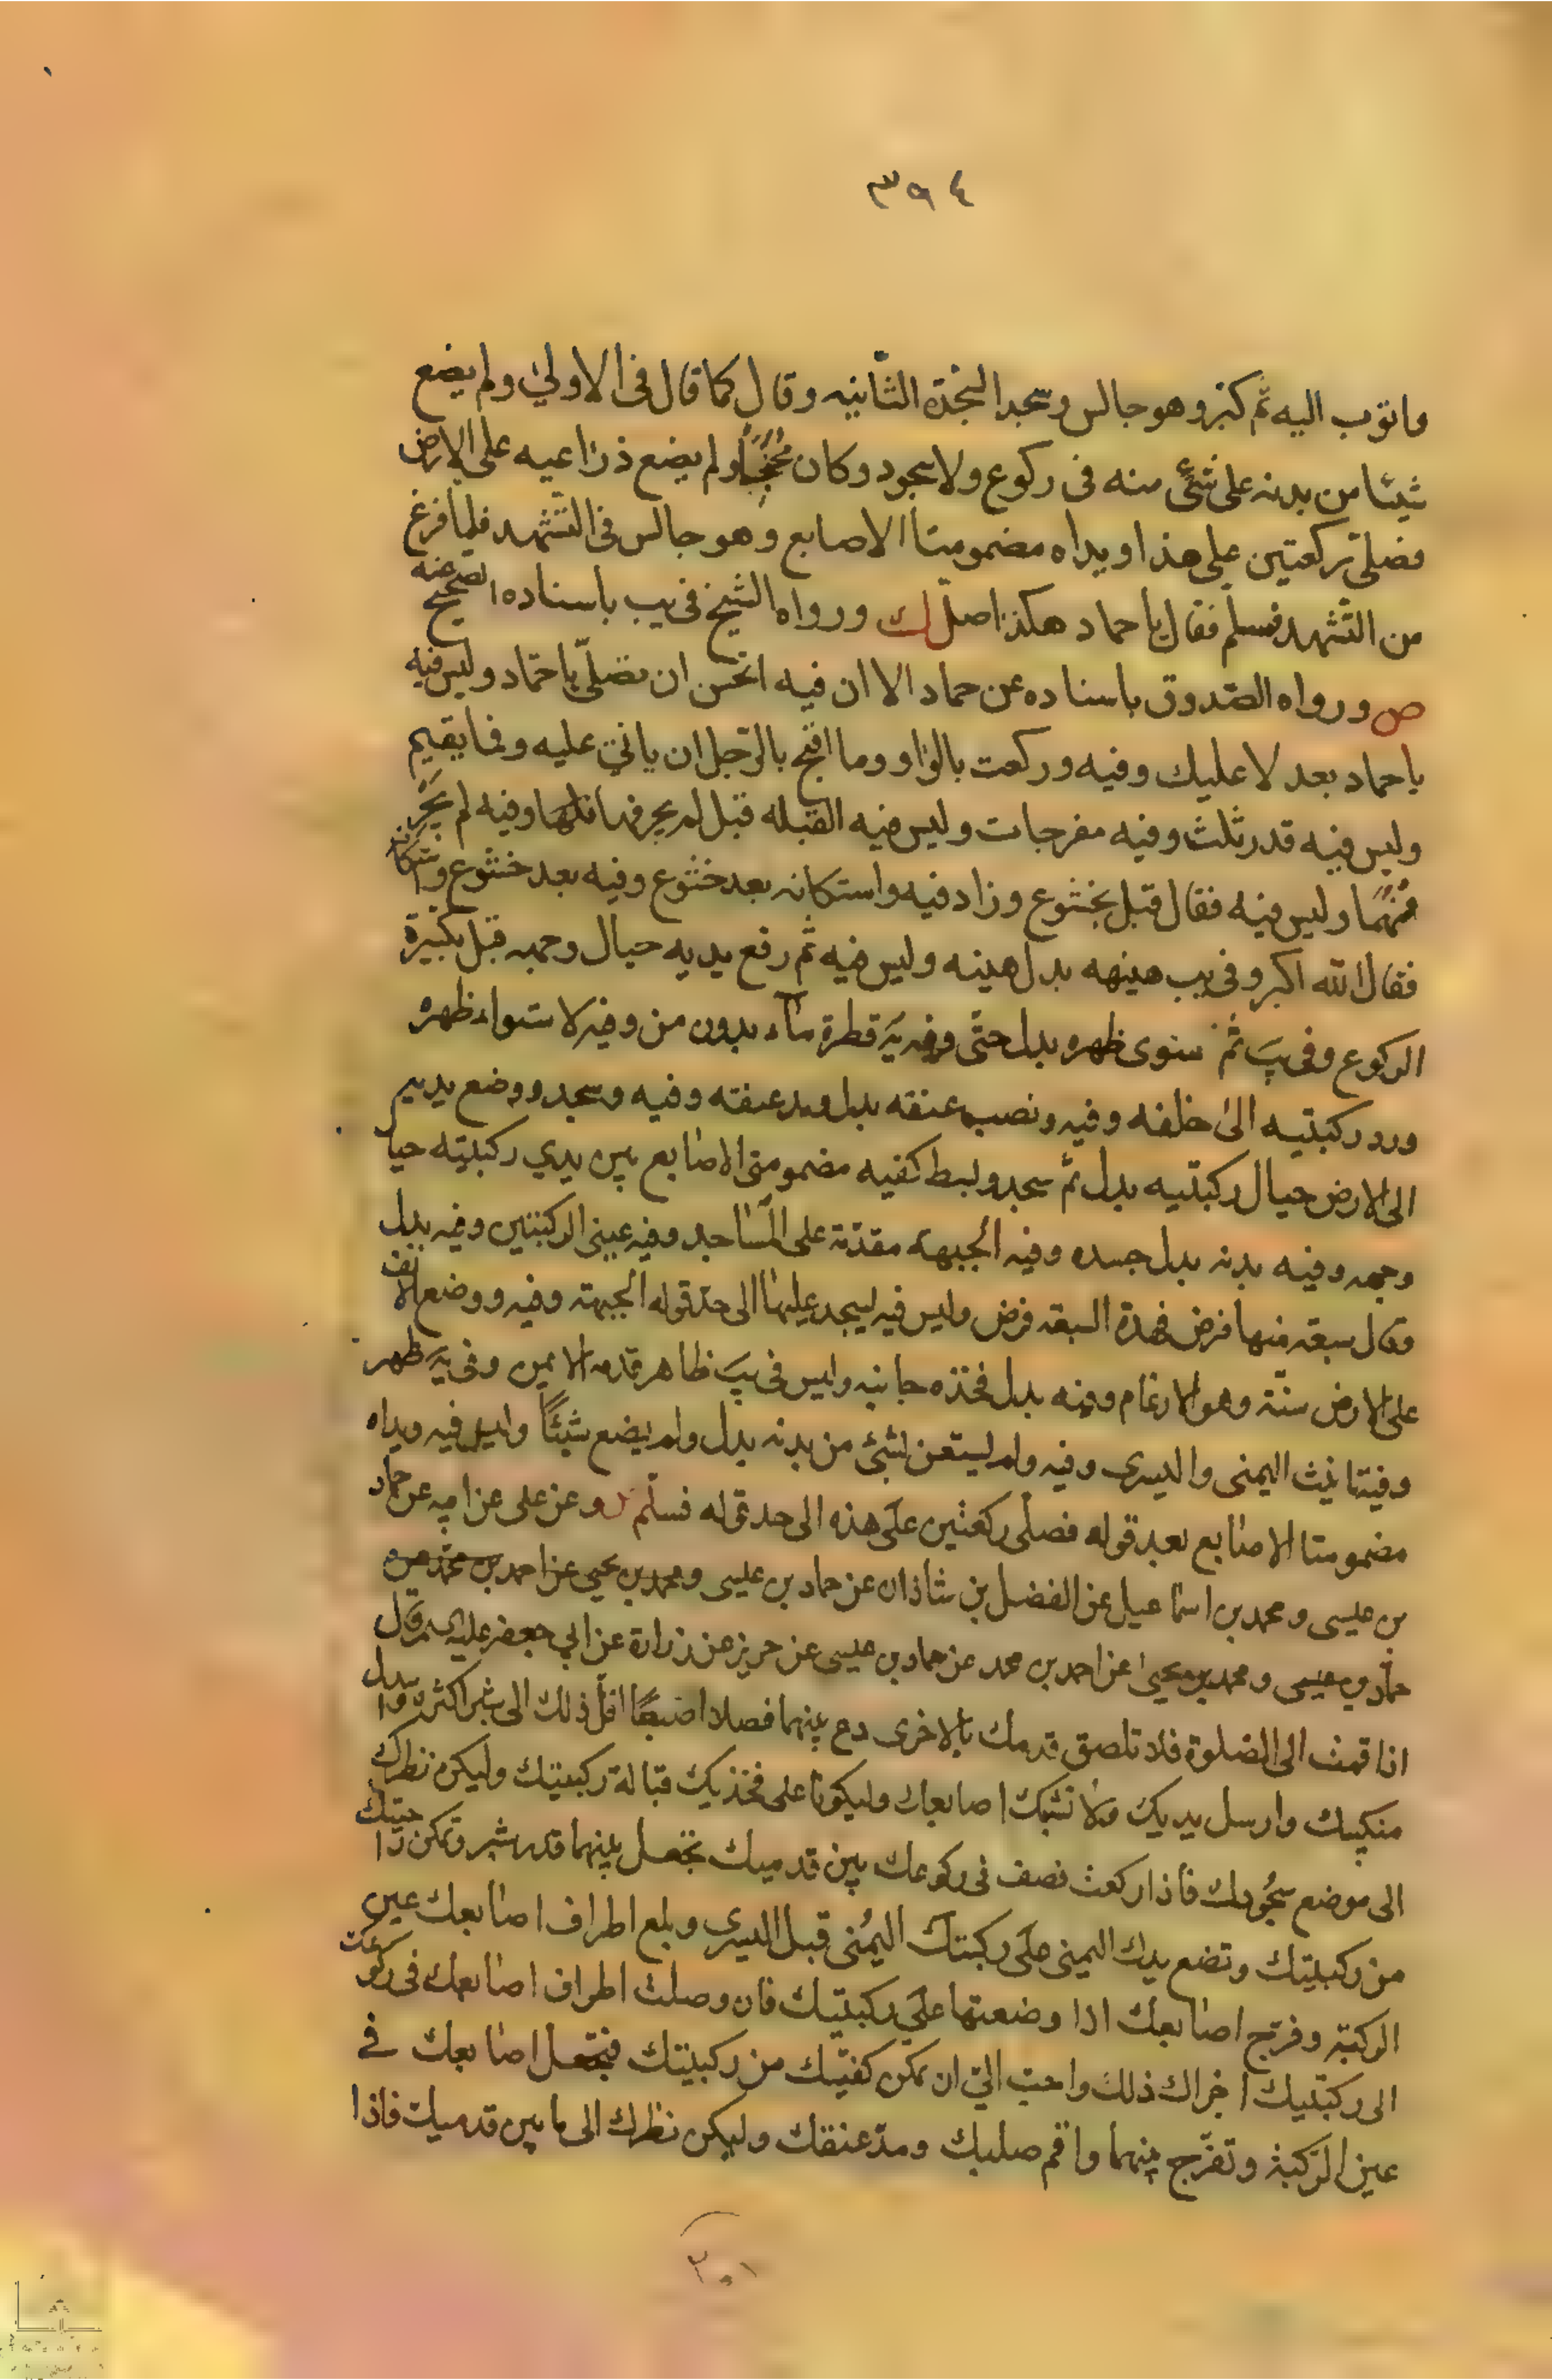 ٣٩٤
واتوب اليه ثم كبر وهو جالس وسجد السجدة الثانيه وقال كما قال فى الاولى ولم يضع
شيئا من بدنه على شئ منه فى ركوع ولا سجود وكان مجنحا ولم يضع ذراعيه على الارض
فصلى ركعتين على هذا ويداه مضمومتا الاصابع وهو جالس فى التشهد فلما فرغ
من التشهد فسلم فقال يا حماد هكذا صل لك ورواه الشيخ فى يب باسناده الصحيح عنه
ص ورواه الصدوق باسناده عن حماد الا ان فيه اتحسن ان تصلى يا حماد وليس فيه
يا حماد بعد لا عليك وفيه وركعت بالواو وما اقبح بالرجل ان ياتى عليه وفما يقيم
وليس فيه قدر ثلث وفيه مفرجات وليس فيه القبله قبل لم يحرفهما وفيه لم يحرف
منهما وليس فيه فقال قبل بخشوع وزاد فيه واستكانه بعد خشوع وفيه بعد خشوع واستكانة
فقال الله اكبر وفى يب هينهه بدل هينه وليس فيه ثم رفع يديه حيال وجهه قبل تكبيرة
الركوع وفى يب ثم سوى ظهره بدل حتى وفيه قطرة ماء بدون من وفيه لاستواء ظهره
ورد ركبتيه الى خلفه وفيه ونصب عنقه بدل ومد عنقه وفيه وسجد ووضع يديه
الى الارض حيال ركبتيه بدل ثم سجد وبسط كفيه مضمومتى الاصابع بين يدي ركبتيه حيال
وجهه وفيه بدنه بدل جسده وفيه الجبهة مقدمة على المساجد وفيه عينى الركبتين وفيه بدل
وقال سبعة منها فرض فهذة السبعة فرض وليس فيه ليسجد عليها الى حد قوله الجبهة وفيه ووضع الانف
على الارض سنة وهو الارغام وفيه بدل فخذه جانبه وليس فى يب ظاهر قدمه الايمن وفى يه ظهر
اليمنى واليسرى وفيه ولم يستعن بشئ من بدنه بدل ولم يضع شيئا وليس فيه ويداه
مضمومتا الاصابع بعد قوله فصلى ركعتين على هذه الى حد قوله فسلم وعن على عن ابيه عن حماد
بن عيسى ومحمد بن اسماعيل عن الفضل بن شاذان عن حماد بن عيسى ومحمد بن يحيى عن احمد بن محمد عن
حماد بن عيسى ومحمد بن يحيى عن احمد بن محمد عن حماد بن عيسى عن حريز عن زرارة عن ابي جعفر عليه قال
اذا قمت الى الصلوة فلا تلصق قدمك بالاخرى دع بينهما فصلا اصبعا اقل ذلك الى شبر اكثره واسدل
منكبيك وارسل يديك ولا تشبك اصابعك وليكونا على فخذيك قبالة ركبتيك وليكن نظرك
الى موضع سجودك فاذا ركعت فصف فى ركوعك بين قدميك تجعل بينهما قدر شبر وتمكن راحتيك
من ركبتيك وتضع يدك اليمنى على ركبتك اليمنى قبل اليسرى وبلع اطراف اصابعك عين
الركبة وفرج اصابعك اذا وضعتها على ركبتيك فان وصلت اطراف اصابعك فى ركوعك
الى ركبتيك اجزاك ذلك واحب الي ان تمكن كفيك من ركبتيك فتجعل اصابعك في
عين الركبة وتفرج بينهما واقم صلبك ومد عنقك وليكن نظرك الى ما بين قدميك فاذا
٢٠١